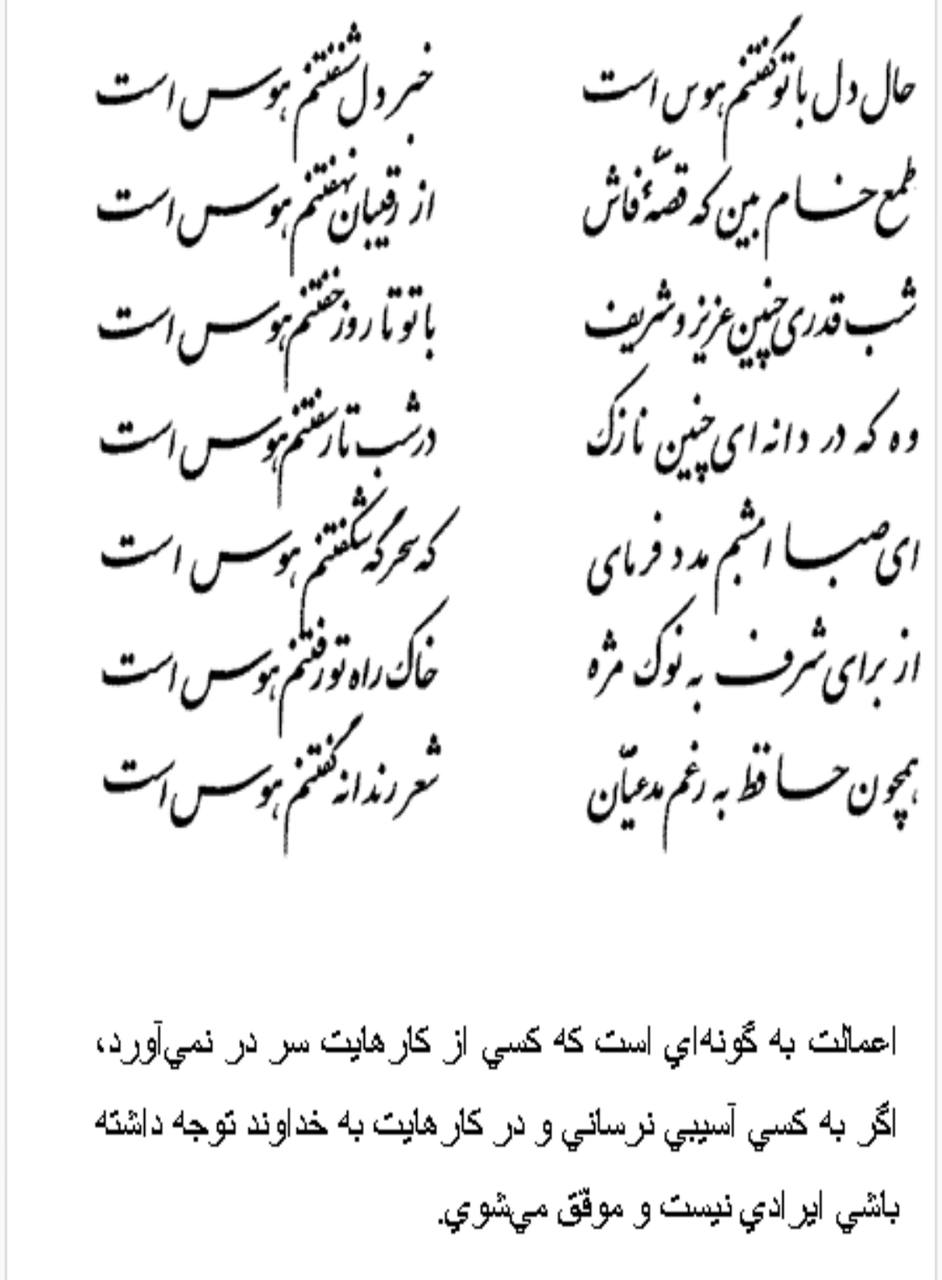 حال دل با تو گفتنم هوس است خبر دل شنفتنم هوس است
طمع خام بین که قصّهٔ فاش از رقیبان نهفتنم هوس است
شب قدری چنین عزیز و شریف با تو تا روز خفتنم هوس است
وه که در دانه ای چنین نازک در شب تار سفتنم هوس است
ای صبا امشبم مدد فرمای که سحرگه شکفتنم هوس است
از برای شرف به نوک مژه خاک راه تو رفتنم هوس است
همچون حافظ به رغم مدعیّان شعر رندانه گفتنم هوس است
اعمالت به گونه‌اي است که کسي از کارهايت سر در نمي‌آورد،
اگر به کسي آسيبي نرساني و در کارهايت به خداوند توجه داشته
باشي ايرادي نيست و موفّق مي‌شوي.